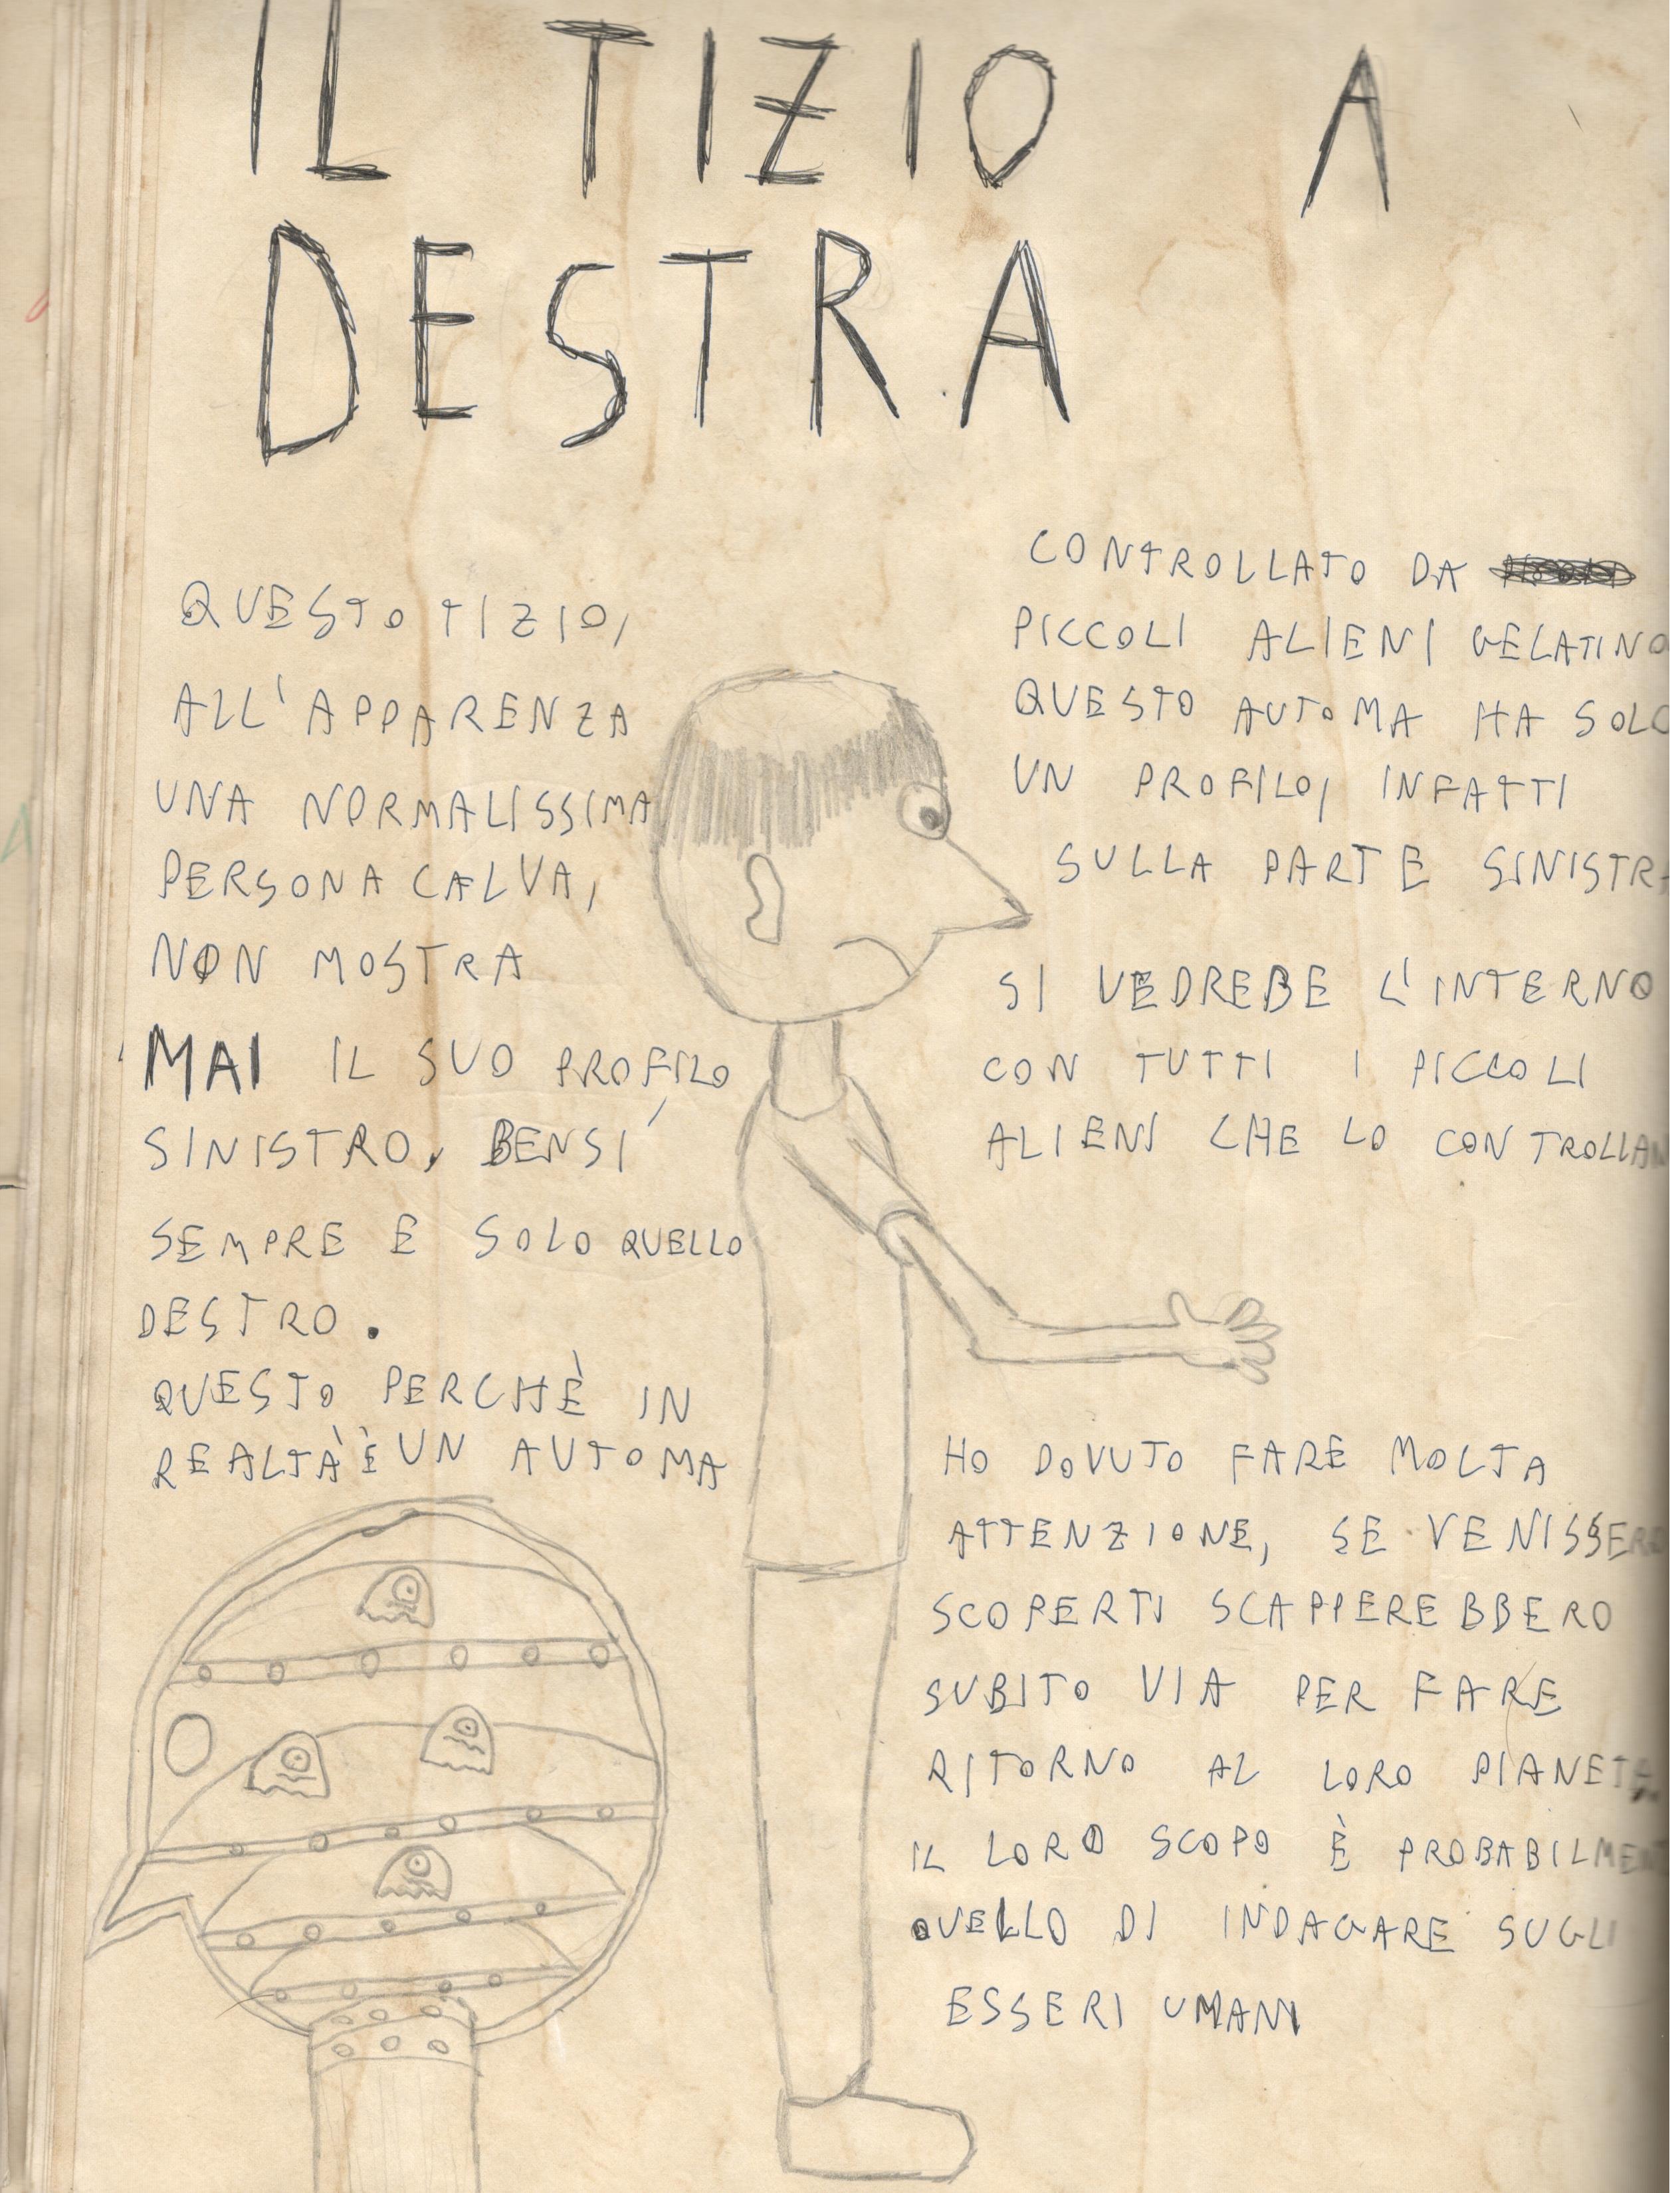 IL TIZIO A
DESTRA
QUESTO TIZIO,
ALL'APPARENZA
UNA NORMALISSIMA
PERSONA CALVA,
NON MOSTRA
MAI IL SUO PROFILO
SINISTRO, BENSÍ
SEMPRE E SOLO QUELLO
DESTRO.
QUESTO PERCHÈ IN
REALTÀ È UN AUTOMA
CONTROLLATO DA
PICCOLI ALIENI GELATINO
QUESTO AUTOMA HA SOLO
UN PROFILO, INFATTI
SULLA PARTE SINISTRA
SI VEDREBE L'INTERNO
CON TUTTI I PICCOLI
ALIENI CHE LO CONTROLLAN
HO DOVUTO FARE MOLTA
ATTENZIONE, SE VENISSERO
SCOPERTI SCAPPEREBBERO
SUBITO VIA PER FARE
RITORNO AL LORO PIANETA.
IL LORO SCOPO È PROBABILMENT
QUELLO DI INDAGARE SUGLI
ESSERI UMANI